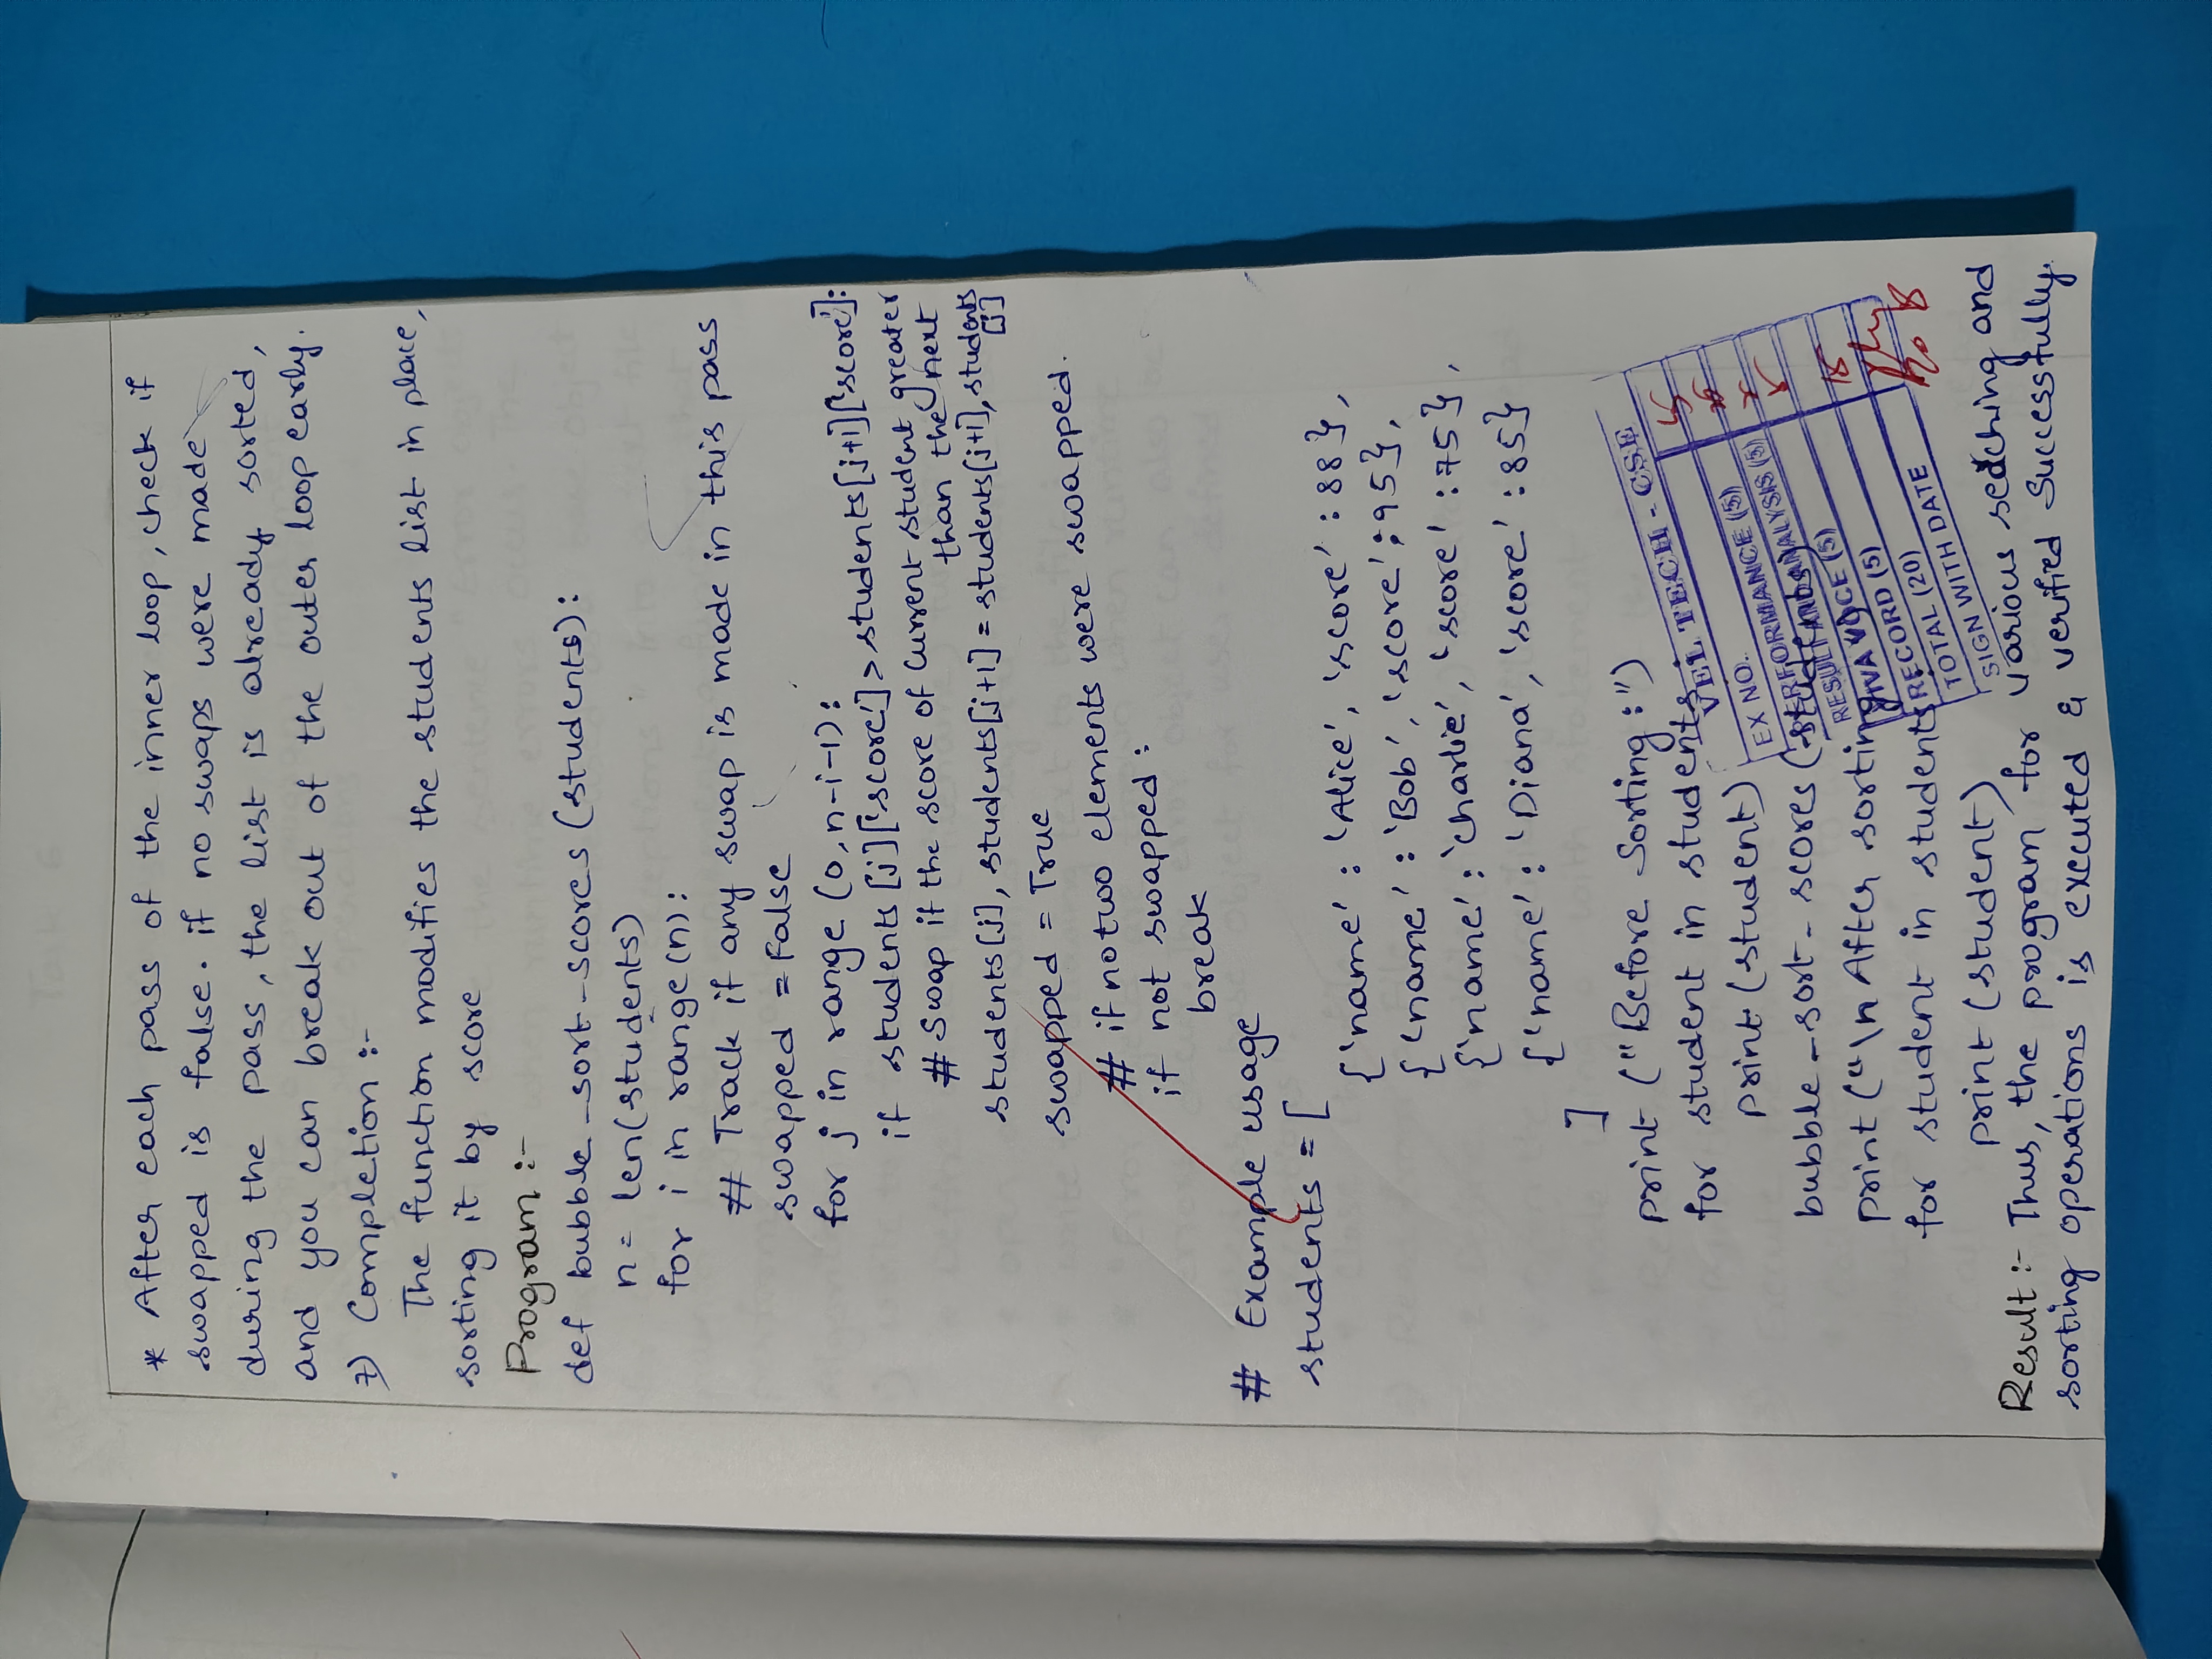 * After each pass of the inner loop, check if
swapped is false. if no swaps were made
during the pass, the list is already sorted,
and you can break out of the outer loop early.
7) Completion :-
The function modifies the students list in place,
sorting it by score
Program :-
def bubble_sort_scores (students):
n = len(students)
for i in range(n):
# Track if any swap is made in this pass
swapped = False
for j in range (0, n-i-1):
if students [j]['score'] > students[j+1]['score']:
# Swap if the score of current student greater
than the next
students[j], students[j+1] = students[j+1], students
[j]
swapped = True
# if no two elements were swapped.
if not swapped :
break
# Example usage
students = [
{'name' : 'Alice', 'score' : 88},
{'name' : 'Bob', 'score' : 95},
{'name' : 'Charlie', 'score' : 75},
{'name' : 'Diana', 'score' : 85}
]
print ("Before Sorting :")
for student in students :
print (student)
bubble_sort_scores (students)
print ("\n After sorting :")
for student in students :
print (student)
VEL TECH - CSE
EX NO.
PERFORMANCE (5)
RESULT AND ANALYSIS (5)
VIVA VOCE (5)
RECORD (5)
TOTAL (20)
SIGN WITH DATE
15
Result :- Thus, the program for various searching and
sorting operations is executed & verified Successfully.